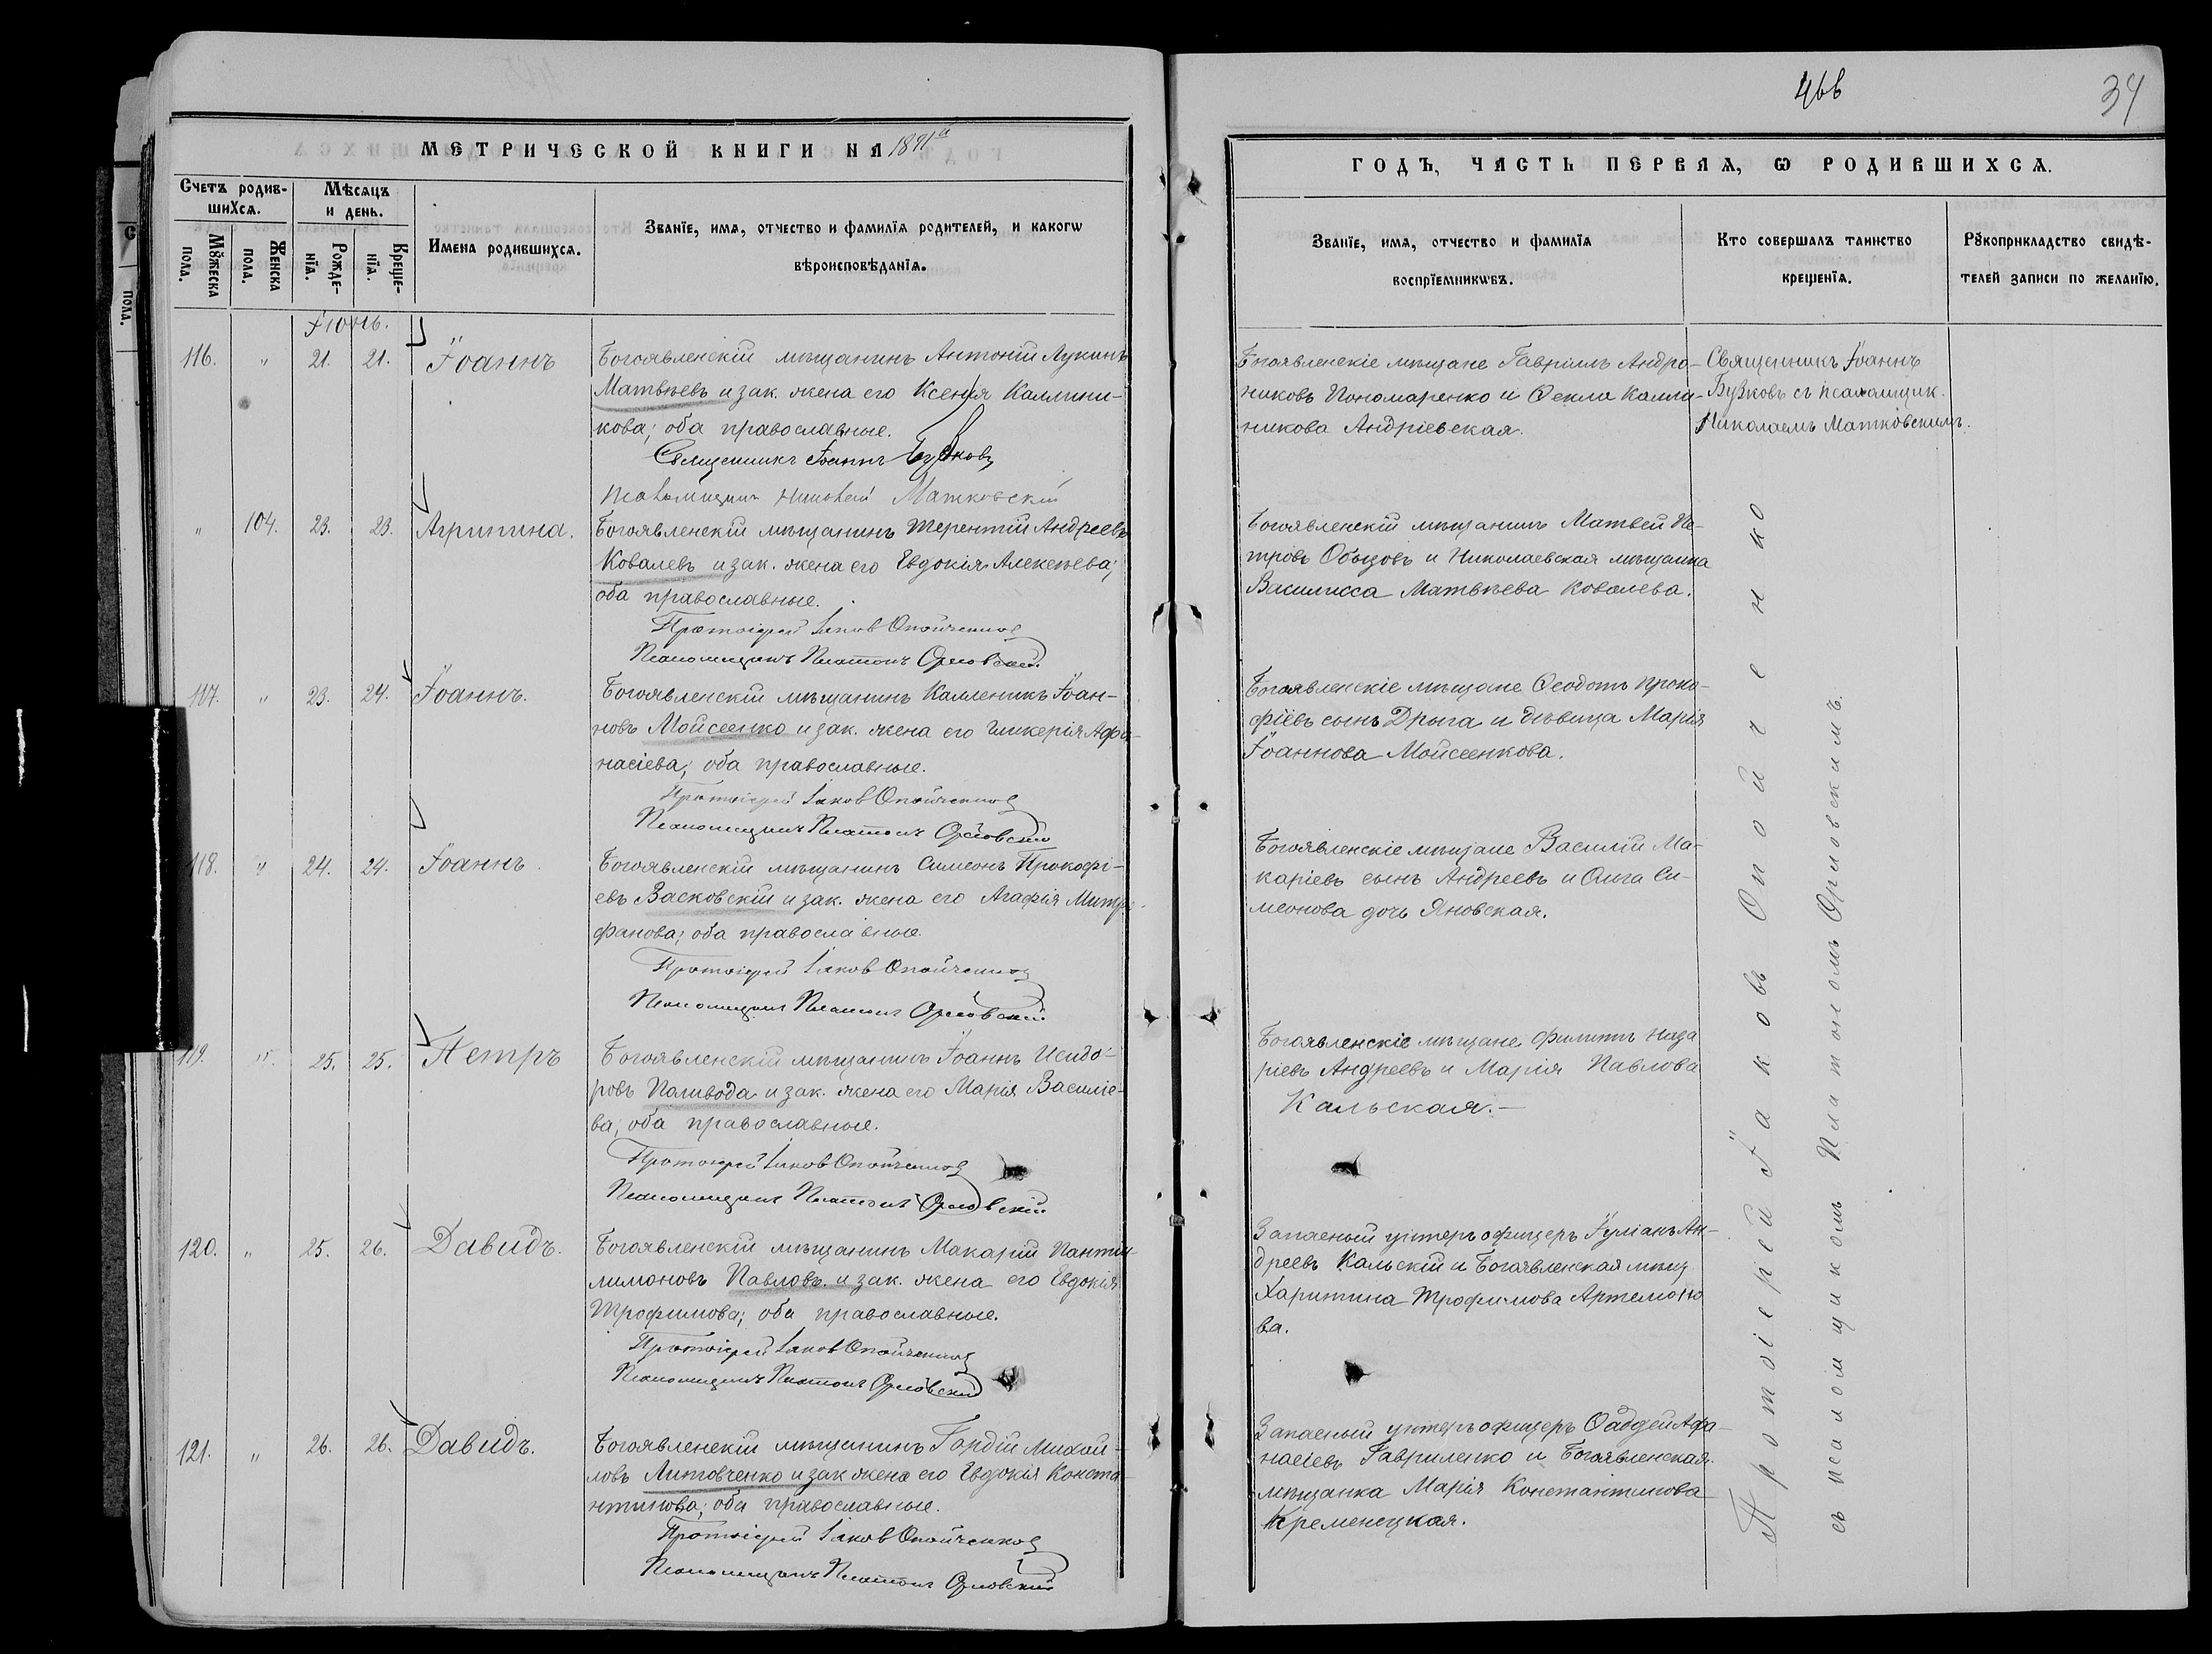 466
34
МЕТРИЧЕСКОЙ КНИГИ НА 1891й
ГОДЪ, ЧАСТЬ ПЕРВАЯ, Ѡ РОДИВШИХСѦ.
Счетъ родив-
шихсѧ.
Мѣсяцъ
и день.
Мꙋжеска
пола.
Женска
пола.
Рожде-
нїѧ.
Креще-
нїѧ.
Имена родившихсѧ.
Званїе, имѧ, отчество и фамилїѧ родителей, и какогѡ
вѣроисповѣданїѧ.
Званїе, имѧ, отчество и фамилїѧ
воспрїемникѡвъ.
Кто совершалъ таинство
крещенїѧ.
Рꙋкоприкладство свидѣ-
телей записи по желанїю.
Іюнь.
116. " 21. 21. Іоаннъ
Богоявленскій мѣщанинъ Антоній Лукинъ
Матвѣевъ и зак. жена его Ксенія Каллини-
кова; оба православные.
Священникъ Іоаннъ Бузковъ
Псаломщикъ Николай Матковскій
Богоявленскіе мѣщане Гавріилъ Андро-
никовъ Пономаренко и Ѳекла Калли-
никова Андріевская.
Священникъ Іоаннъ
Бузковъ съ псаломщик.
Николаемъ Матковскимъ.
" 104. 23. 23. Агрипина.
Богоявленскій мѣщанинъ Терентій Андреевъ
Ковалевъ и зак. жена его Евдокія Алексѣева;
оба православные.
Протоіерей Іаковъ Опойченко
Псаломщикъ Платонъ Орловскій
Богоявленскій мѣщанинъ Матвей Пе-
тровъ Обыдовъ и Николаевская мѣщанка
Василисса Матвѣева Ковалева.
117. " 23. 24. Іоаннъ.
Богоявленскій мѣщанинъ Калленикъ Іоан-
новъ Мойсеенко и зак. жена его Гликерія Афа-
насіева; оба православные.
Протоіерей Іаковъ Опойченко
Псаломщикъ Платонъ Орловскій
Богоявленскіе мѣщане Ѳеодотъ Проко-
фіевъ сынъ Дрыга и дѣвица Марія
Іоаннова Мойсеенкова.
118. " 24. 24. Іоаннъ.
Богоявленскій мѣщанинъ Симеонъ Прокофі-
евъ Васковскій и зак. жена его Агафія Митро-
фанова; оба православные.
Протоіерей Іаковъ Опойченко
Псаломщикъ Платонъ Орловскій
Богоявленскіе мѣщане Василій Ма-
каріевъ сынъ Андреевъ и Ольга Си-
меонова дочь Яновская.
119. " 25. 25. Петръ
Богоявленскій мѣщанинъ Іоаннъ Исидо-
ровъ Паливода и зак. жена его Марія Василіе-
ва; оба православные.
Протоіерей Іаковъ Опойченко
Псаломщикъ Платонъ Орловскій
Богоявленскіе мѣщане Филиппъ Наза
ріевъ Андреевъ и Марія Павлова
Кальская.
120. " 25. 26. Давидъ.
Богоявленскій мѣщанинъ Макарій Пантеи-
лимоновъ Павловъ и зак. жена его Евдокія
Трофимова; оба православные.
Протоіерей Іаковъ Опойченко
Псаломщикъ Платонъ Орловскій
Запасный унтеръ офицеръ Іуліанъ Ан-
дреевъ Кальскій и Богоявленская мѣщ
Харитина Трофимова Артемоно
ва.
121. " 26. 26. Давидъ.
Богоявленскій мѣщанинъ Гордій Михай-
ловъ Литовченко и зак жена его Евдокія Конста-
нтинова; оба православные.
Протоіерей Іаковъ Опойченко
Псаломщикъ Платонъ Орловскій
Запасный унтеръ офицеръ Ѳаддей Афа-
насіевъ Гавриленко и Богоявленская
мѣщанка Марія Константинова
Кременецкая.
Протоіерей Іаковъ Опойченко
съ псаломщикомъ Платономъ Орловскимъ.